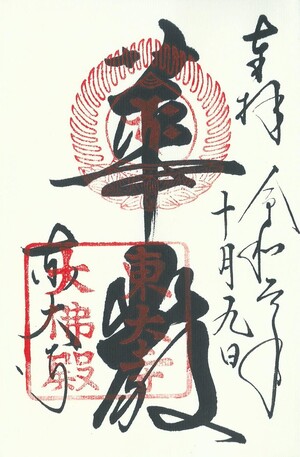 奉拝
令和元年
十月九日
華嚴
東大寺
東大寺
大佛殿